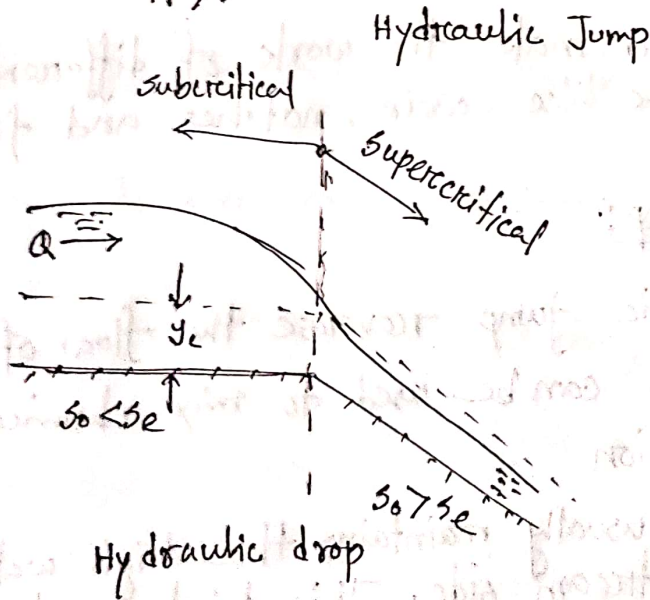 Hydraulic Jump
subcritical
supercritical
Q
yc
S0 < Sc
S0 > Sc
Hydraulic drop